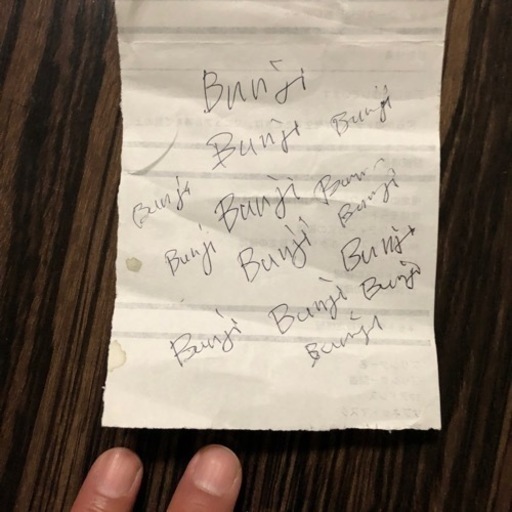 Bunji
Bunji Bunji
Bunji Bunji Bunji
Bunji
Bunji Bunji Bunji
Bunji Bunji
Bunji Bunji